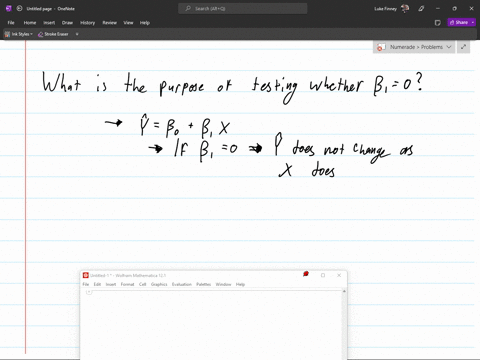 Untitled page - OneNote
Search (Alt+Q)
Luke Finney
File Home Insert Draw History Review View Help
Share
Ink Styles Stroke Eraser
Numerade > Problems
What is the purpose of testing whether β₁ = 0?
→ Ŷ = β₀ + β₁ X
→ If β₁ = 0 ⇒ Ŷ does not change as
X does
Untitled-1 * - Wolfram Mathematica 12.1
File Edit Insert Format Cell Graphics Evaluation Palettes Window Help